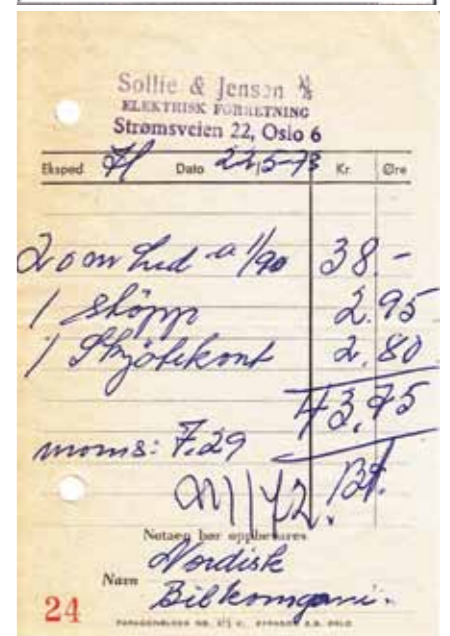 Sollie & Jensen A/S
ELEKTRISK FORRETNING
Strømsveien 22, Oslo 6
Eksped. Dato 22/5-73 Kr. Øre
20 m Led a 1/90 38 -
1 støpp 2.95
1 Skjøtekont 2.80
43,75
moms: 7.29
Bt.
Notaen bør oppbevares
Nordisk
Navn Bilkompani.
24